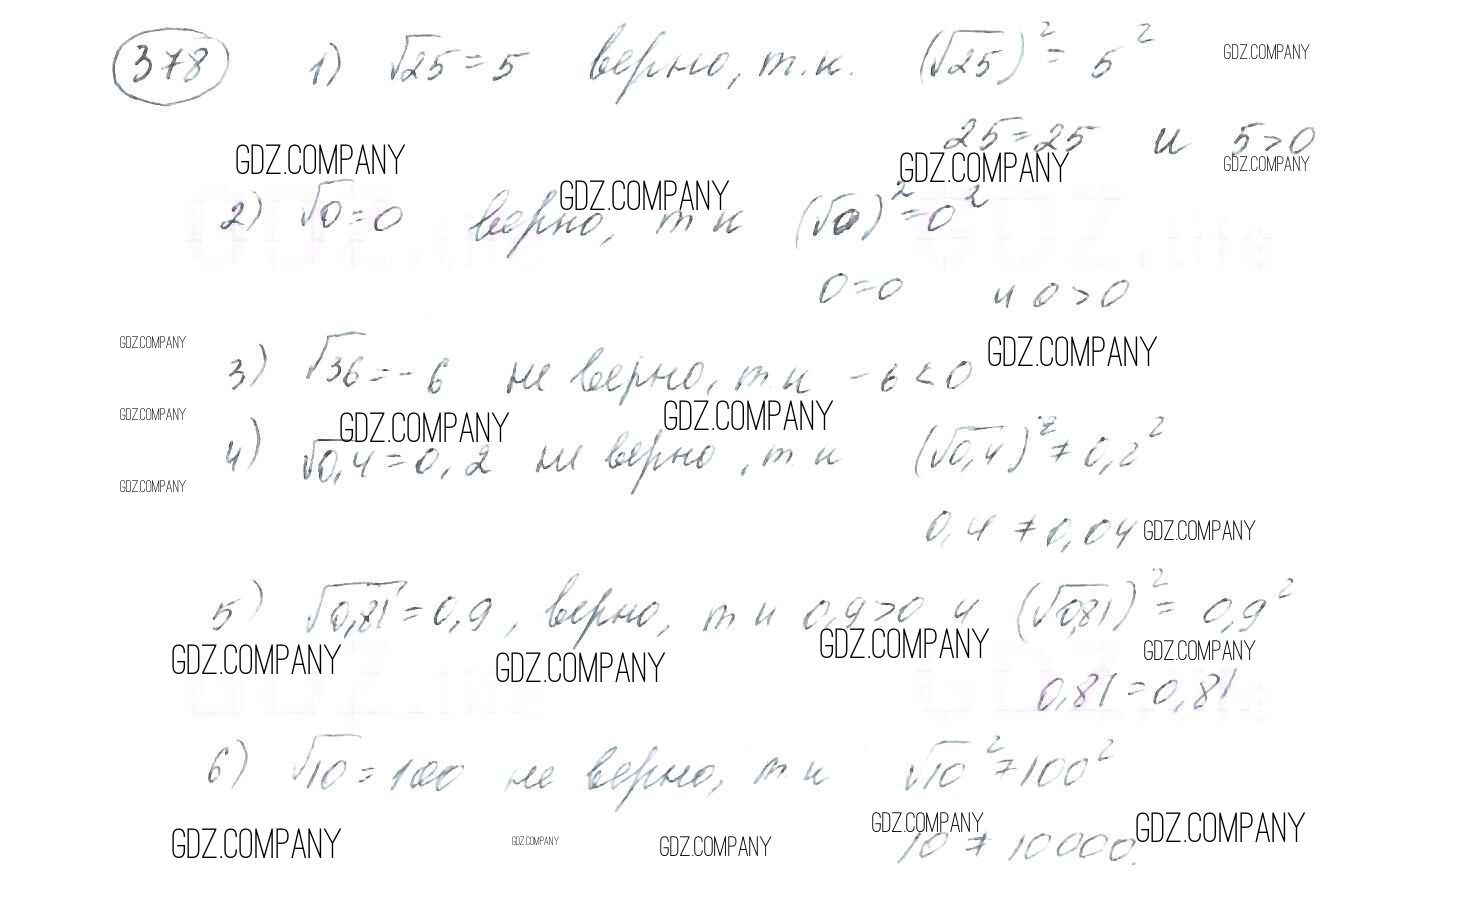 378 1) √25 = 5 верно, т.к. (√25)² = 5²
GDZ.COMPANY
25 = 25 и 5 > 0
GDZ.COMPANY GDZ.COMPANY GDZ.COMPANY GDZ.COMPANY
2) √0 = 0 верно, т к (√0)² = 0²
0 = 0 и 0 > 0
GDZ.COMPANY GDZ.COMPANY
3) √36 = - 6 не верно, т к - 6 < 0
GDZ.COMPANY GDZ.COMPANY GDZ.COMPANY
4) √0,4 = 0,2 не верно, т к (√0,4)² ≠ 0,2²
GDZ.COMPANY
0,4 ≠ 0,04 GDZ.COMPANY
5) √0,81 = 0,9, верно, т к 0,9 > 0 и (√0,81)² = 0,9²
GDZ.COMPANY GDZ.COMPANY GDZ.COMPANY GDZ.COMPANY
0,81 = 0,81
6) √10 = 100 не верно, т к √10² ≠ 100²
GDZ.COMPANY GDZ.COMPANY GDZ.COMPANY GDZ.COMPANY GDZ.COMPANY
10 ≠ 10000.